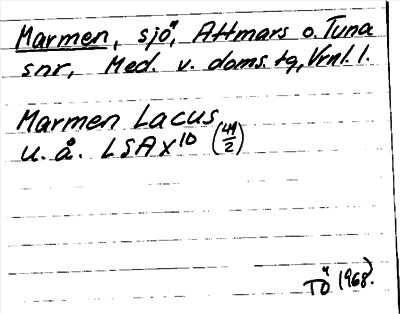 Marmen, sjö, Attmars o. Tuna
snr, Med. v. doms. tg, Vrnl. l.
Marmen Lacus
u. å. LSA X 10 (41/2)
TÖ 1968.